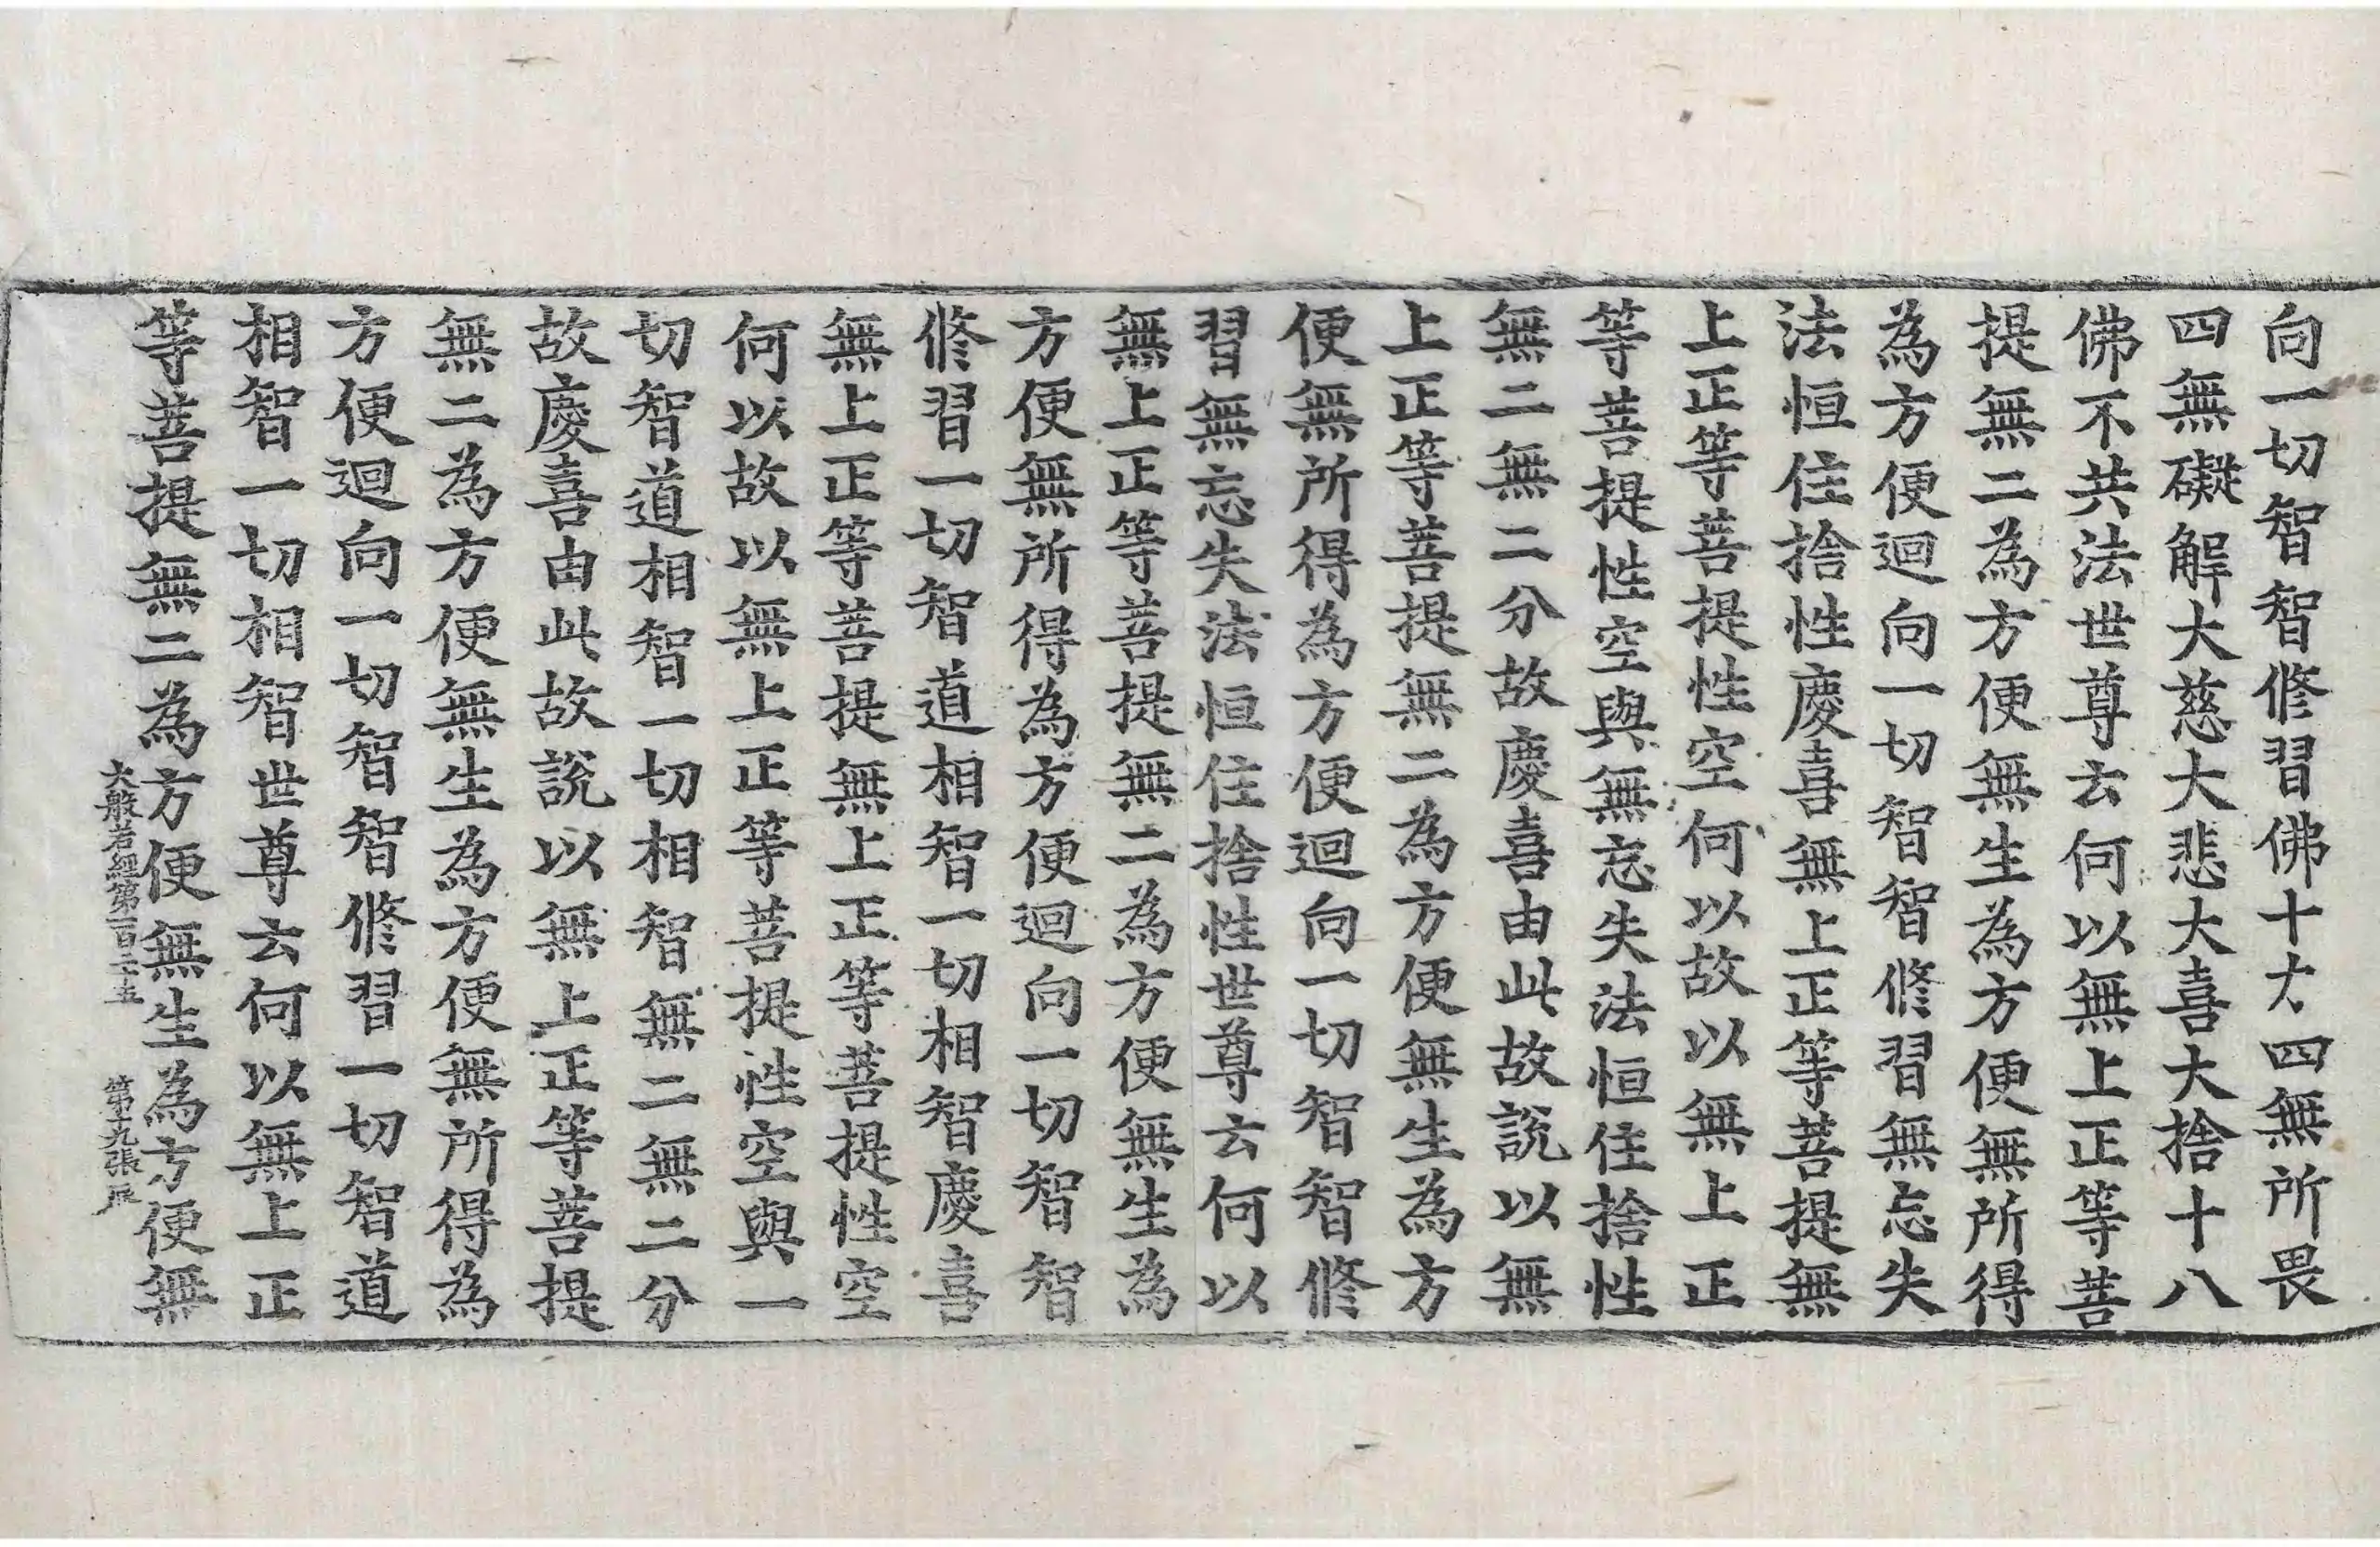 向一切智智修習佛十力四無所畏
四無礙解大慈大悲大喜大捨十八
佛不共法世尊云何以無上正等菩
提無二為方便無生為方便無所得
為方便迴向一切智智修習無忘失
法恒住捨性慶喜無上正等菩提無
上正等菩提性空何以故以無上正
等菩提性空與無忘失法恒住捨性
無二無二分故慶喜由此故說以無
上正等菩提無二為方便無生為方
便無所得為方便迴向一切智智修
習無忘失法恒住捨性世尊云何以
無上正等菩提無二為方便無生為
方便無所得為方便迴向一切智智
修習一切智道相智一切相智慶喜
無上正等菩提無上正等菩提性空
何以故以無上正等菩提性空與一
切智道相智一切相智無二無二分
故慶喜由此故說以無上正等菩提
無二為方便無生為方便無所得為
方便迴向一切智智修習一切智道
相智一切相智世尊云何以無上正
等菩提無二為方便無生為方便無
大般若經第一百二十五 第十九張 辰